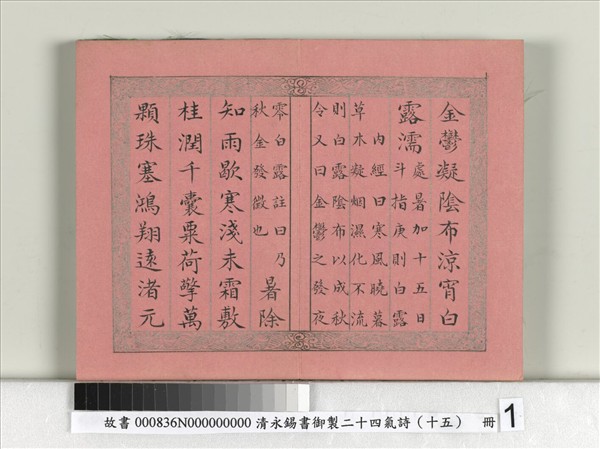 金鬱凝陰布涼宵白
露濡
處暑加十五日
斗指庚則白露
內經曰寒風曉暮
草木凝烟濕化不流
則白露陰布以成秋
令又曰金鬱之發夜
零白露註曰乃
秋金發徵也
暑除
知雨歇寒淺未霜敷
桂潤千囊粟荷擎萬
顆珠塞鴻翔遠渚元
故書 000836N000000000 清永錫書御製二十四氣詩（十五） 冊 1